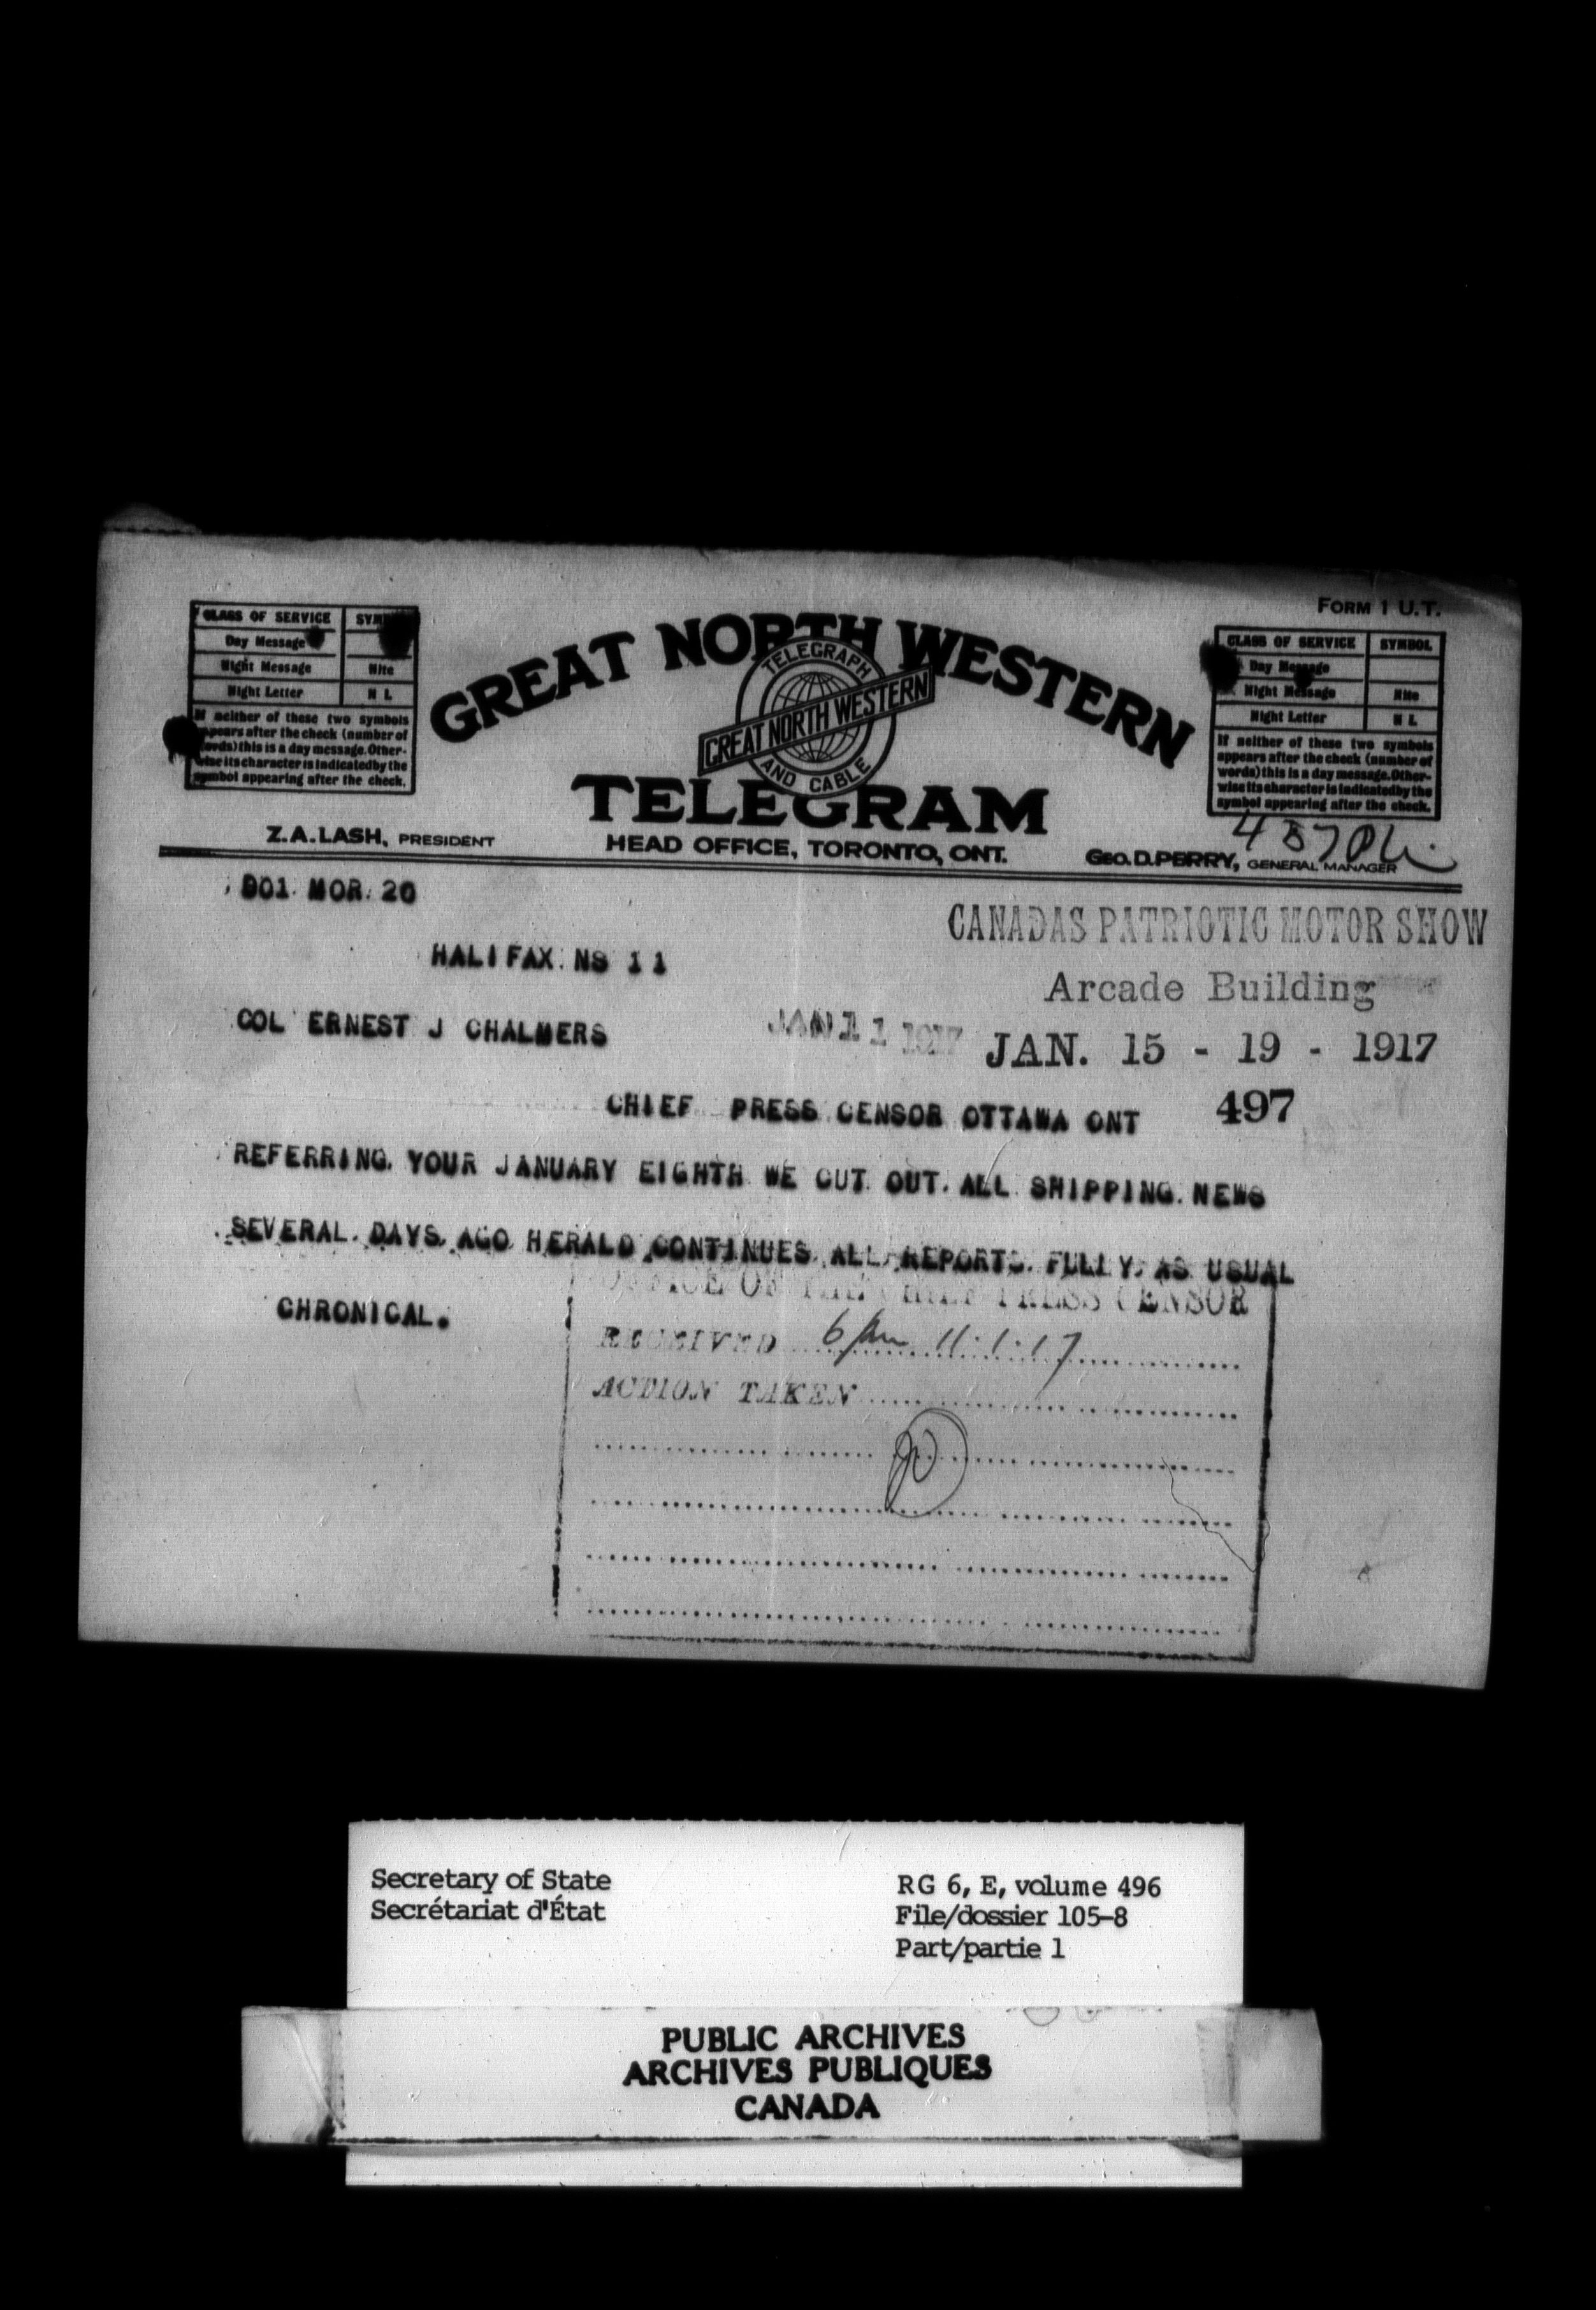 FORM 1 U.T.
CLASS OF SERVICE SYM
Day Message
Night Message Nite
Night Letter N L
If neither of these two symbols
appears after the check (number of
words) this is a day message. Other-
wise its character is indicated by the
symbol appearing after the check.
GREAT NORTH WESTERN
TELEGRAPH
GREAT NORTH WESTERN
AND CABLE
TELEGRAM
CLASS OF SERVICE SYMBOL
Day Message
Night Message Nite
Night Letter N L
If neither of these two symbols
appears after the check (number of
words) this is a day message. Other-
wise its character is indicated by the
symbol appearing after the check.
Z. A. LASH, PRESIDENT
HEAD OFFICE, TORONTO, ONT.
GEO. D. PERRY, GENERAL MANAGER
DO1. MOR. 20
CANADAS PATRIOTIC MOTOR SHOW
HALIFAX. NS 11
Arcade Building
COL ERNEST J CHALMERS
JAN 11 1917
JAN. 15 - 19 - 1917
CHIEF PRESS CENSOR OTTAWA ONT
497
REFERRING. YOUR JANUARY EIGHTH WE CUT OUT. ALL SHIPPING. NEWS
SEVERAL. DAYS. AGO HERALD CONTINUES. ALL REPORTS. FULLY. AS USUAL
CHRONICAL.
OFFICE OF THE CHIEF PRESS CENSOR
RECEIVED 6 pm 11.1.17
ACTION TAKEN
Secretary of State
Secrétariat d'État
RG 6, E, volume 496
File/dossier 105-8
Part/partie 1
PUBLIC ARCHIVES
ARCHIVES PUBLIQUES
CANADA